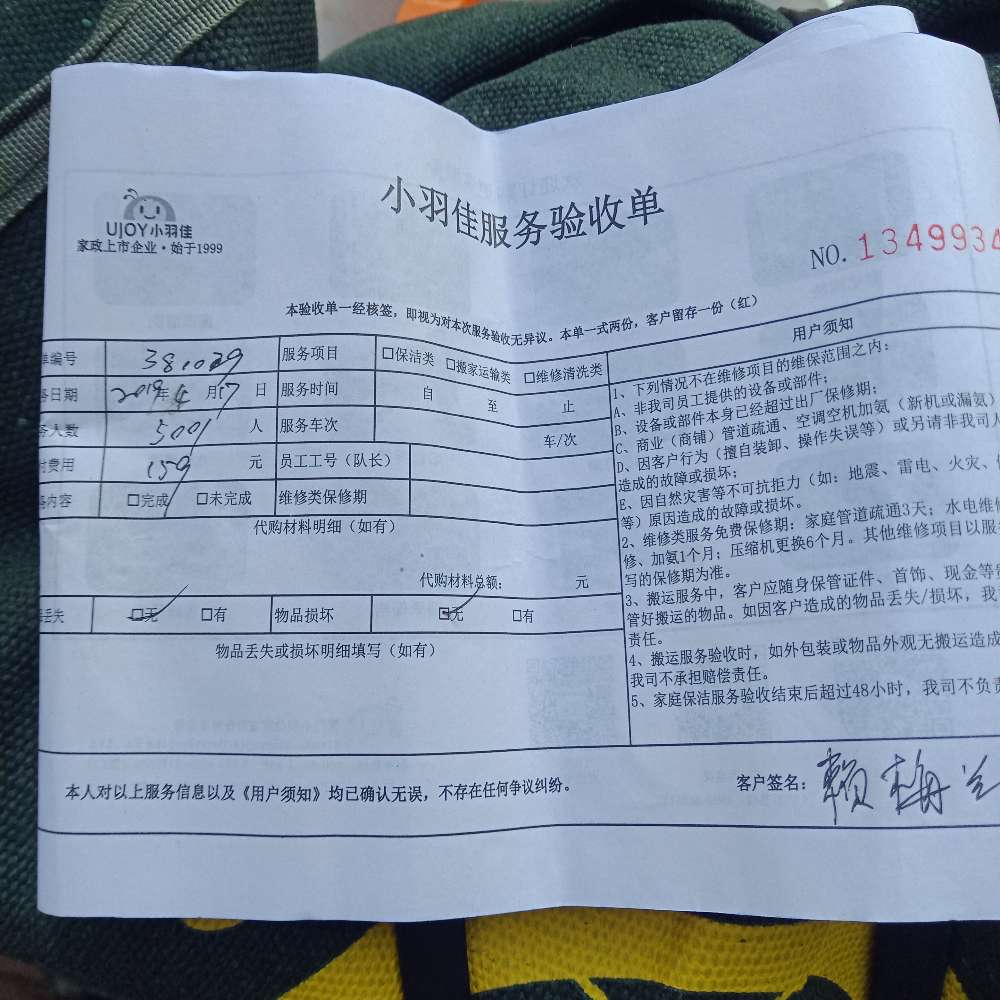 小羽佳服务验收单
UJOY小羽佳
家政上市企业·始于1999
NO.1349934
本验收单一经核签，即视为对本次服务验收无异议。本单一式两份，客户留存一份（红）
单编号 381029 服务项目 □保洁类 □搬家运输类 □维修清洗类
务日期 2019年4月17日 服务时间 自 至 止
务人数 人 服务车次 车/次
付费用 159 元 员工工号（队长）
务内容 □完成 □未完成 维修类保修期
代购材料明细（如有）
代购材料总额： 元
丢失 □无 □有 物品损坏 □无 □有
物品丢失或损坏明细填写（如有）
用户须知
1、下列情况不在维修项目的维保范围之内：
A、非我司员工提供的设备或部件；
B、设备或部件本身已经超过出厂保修期；
C、商业（商铺）管道疏通、空调空机加氨（新机或漏氨）
D、因客户行为（擅自装卸、操作失误等）或另请非我司人
造成的故障或损坏；
E、因自然灾害等不可抗拒力（如：地震、雷电、火灾、
等）原因造成的故障或损坏。
2、维修类服务免费保修期：家庭管道疏通3天；水电维修
修、加氨1个月；压缩机更换6个月。其他维修项目以服
写的保修期为准。
3、搬运服务中，客户应随身保管证件、首饰、现金等
管好搬运的物品。如因客户造成的物品丢失/损坏，我
责任。
4、搬运服务验收时，如外包装或物品外观无搬运造成
我司不承担赔偿责任。
5、家庭保洁服务验收结束后超过48小时，我司不负责
本人对以上服务信息以及《用户须知》均已确认无误，不存在任何争议纠纷。
客户签名：赖梅兰